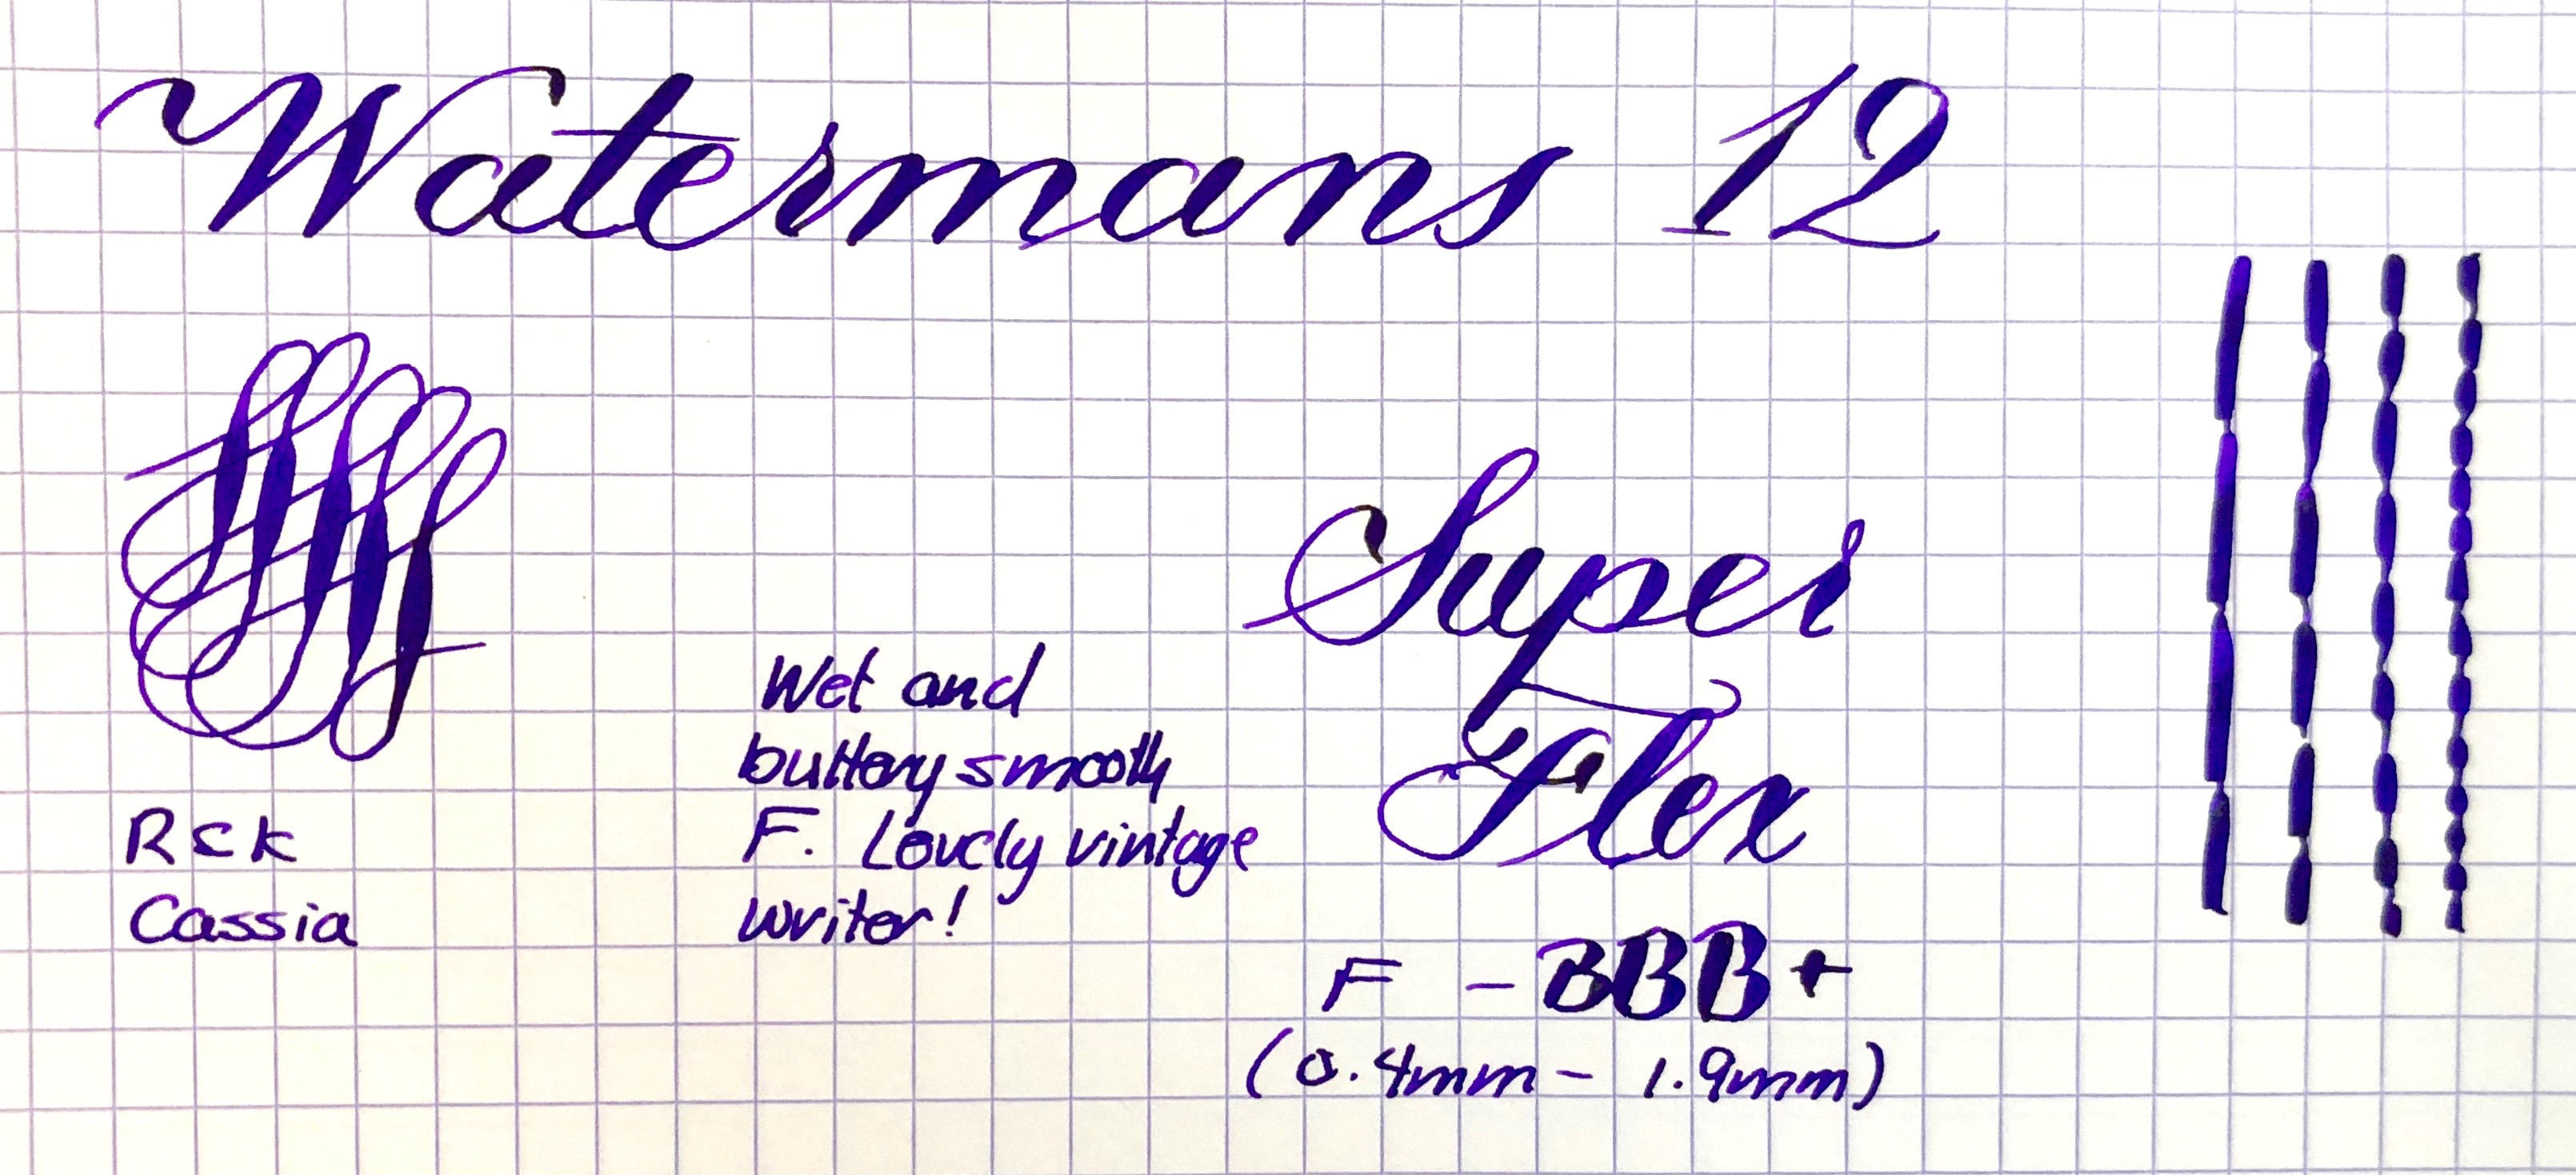 Watermans 12
Super
Flex
Wet and
buttery smooth
F. Lovely vintage
writer!
R & K
Cassia
F - BBB+
(0.4mm - 1.9mm)